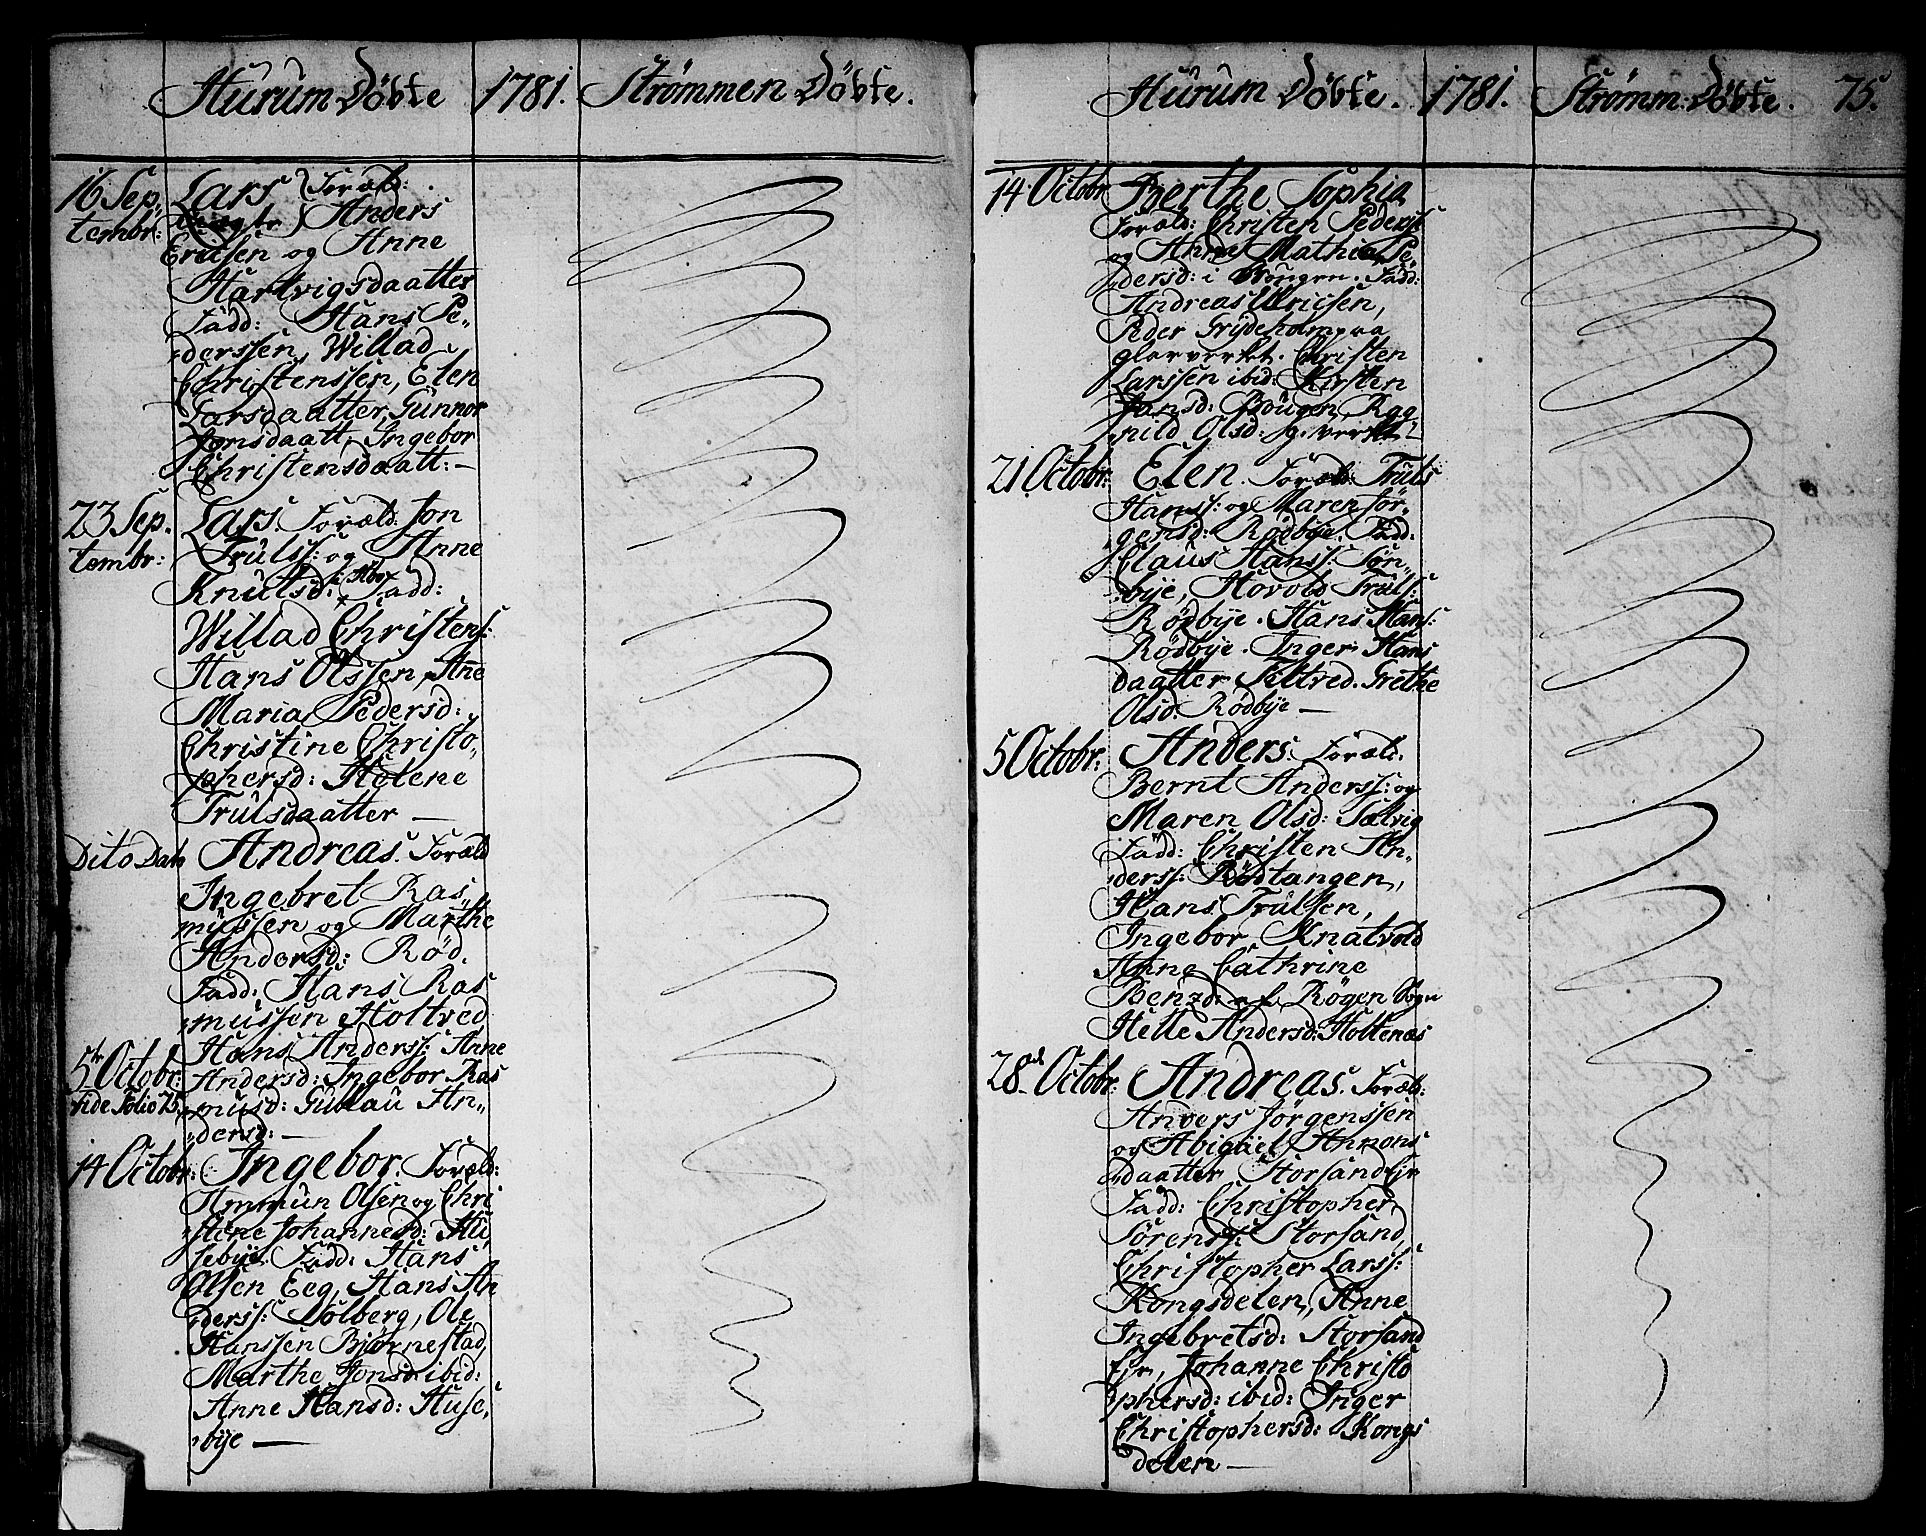 Hurum Döbte 1781. Strømmen Döbte.
16 Sep,, Lars Foræld:
tembr: Anders
Ericsen og Anne
Hartvigsdaatter
Fadd: Hans Pe,,
derssen, Willad
Christenssen, Elen
Larsdaatter, Gunnor
Jonsdaatt, Ingebor
Christensdaatt: —
23 Sep. Lars. Foræld: Jon
tembr: Trulss: og Anne
Knutsd: Fadd:
Willad Christens:
Hans Olssen, Ane
Maria Pedersd:
Christine Christo,,
phersd: Helene
Trulsdaatter —
Dito Dato Andreas. Foræld
Ingebret Ras,,
mussen og Marthe
Andersd: Rød.
Fadd: Hans Ras
mussen Holtved
Hans Anderss: Anne
5te Octobr: Andersd: Ingebor Ras
vide Folio 75. musd: Gublau An,,
dersd: —
14 Octobr: Ingebor. Foræld:
Ammun Olsen og Chri
stine Johannesd: Hu,
sebye. Fadd: Hans
Olsen Eeg, Hans An
derss: Solberg, Ole
Hanssen Bjørnestad,
Marthe Jonsd: ibid:
Anne Hansd: Huse,
bye —
Hurum Döbte. 1781. Strømm: Döbte. 75.
14 Octobr Berthe Sophia
Foræld: Christen Pederss:
og Anne Mathia Pe,,
dersd: i Bougen. Fadd:
Andreas Ulricsen,
Peder Grydeholm paa
glasverket. Christen
Larssen ibid: Kirsten
Hansd: Bougen, Rag
nild Olsd: g. verket —
21 Octobr: Elen. Foræld: Truls
Hanss: og Maren Jör,,
gensd: Rödbye. Fadd:
Claus Hanss: Tøn,,
bye, Horold Trulss:
Rödbye. Hans Hans:
Rödbye. Inger Hans
daatter Holtved. Grethe
Olsd: Rödbye —
5 Octobr: Anders. Foræld.
Bernt Anderss: og
Maren Olsd: Sætvig
Fadd: Christen An,,
derss: Rödtangen,
Hans Trulsen,
Ingebor Knatvold
Anne Cathrine
Benzd: af Røgen Sogn
Helle Andersd: Holtenæs
28de Octobr: Andreas. Foræld:
Anders Jörgenssen
og Abigael Ammons
daatter Storsand Ejr
Fadd: Christopher
Sörenss: Storsand,
Christopher Larss:
Kongsdelen, Anne
Ingebretsd: Storsand
Ejr, Johanne Christo
phersd: ibid: Inger
Christophersd: Kongs
delen —